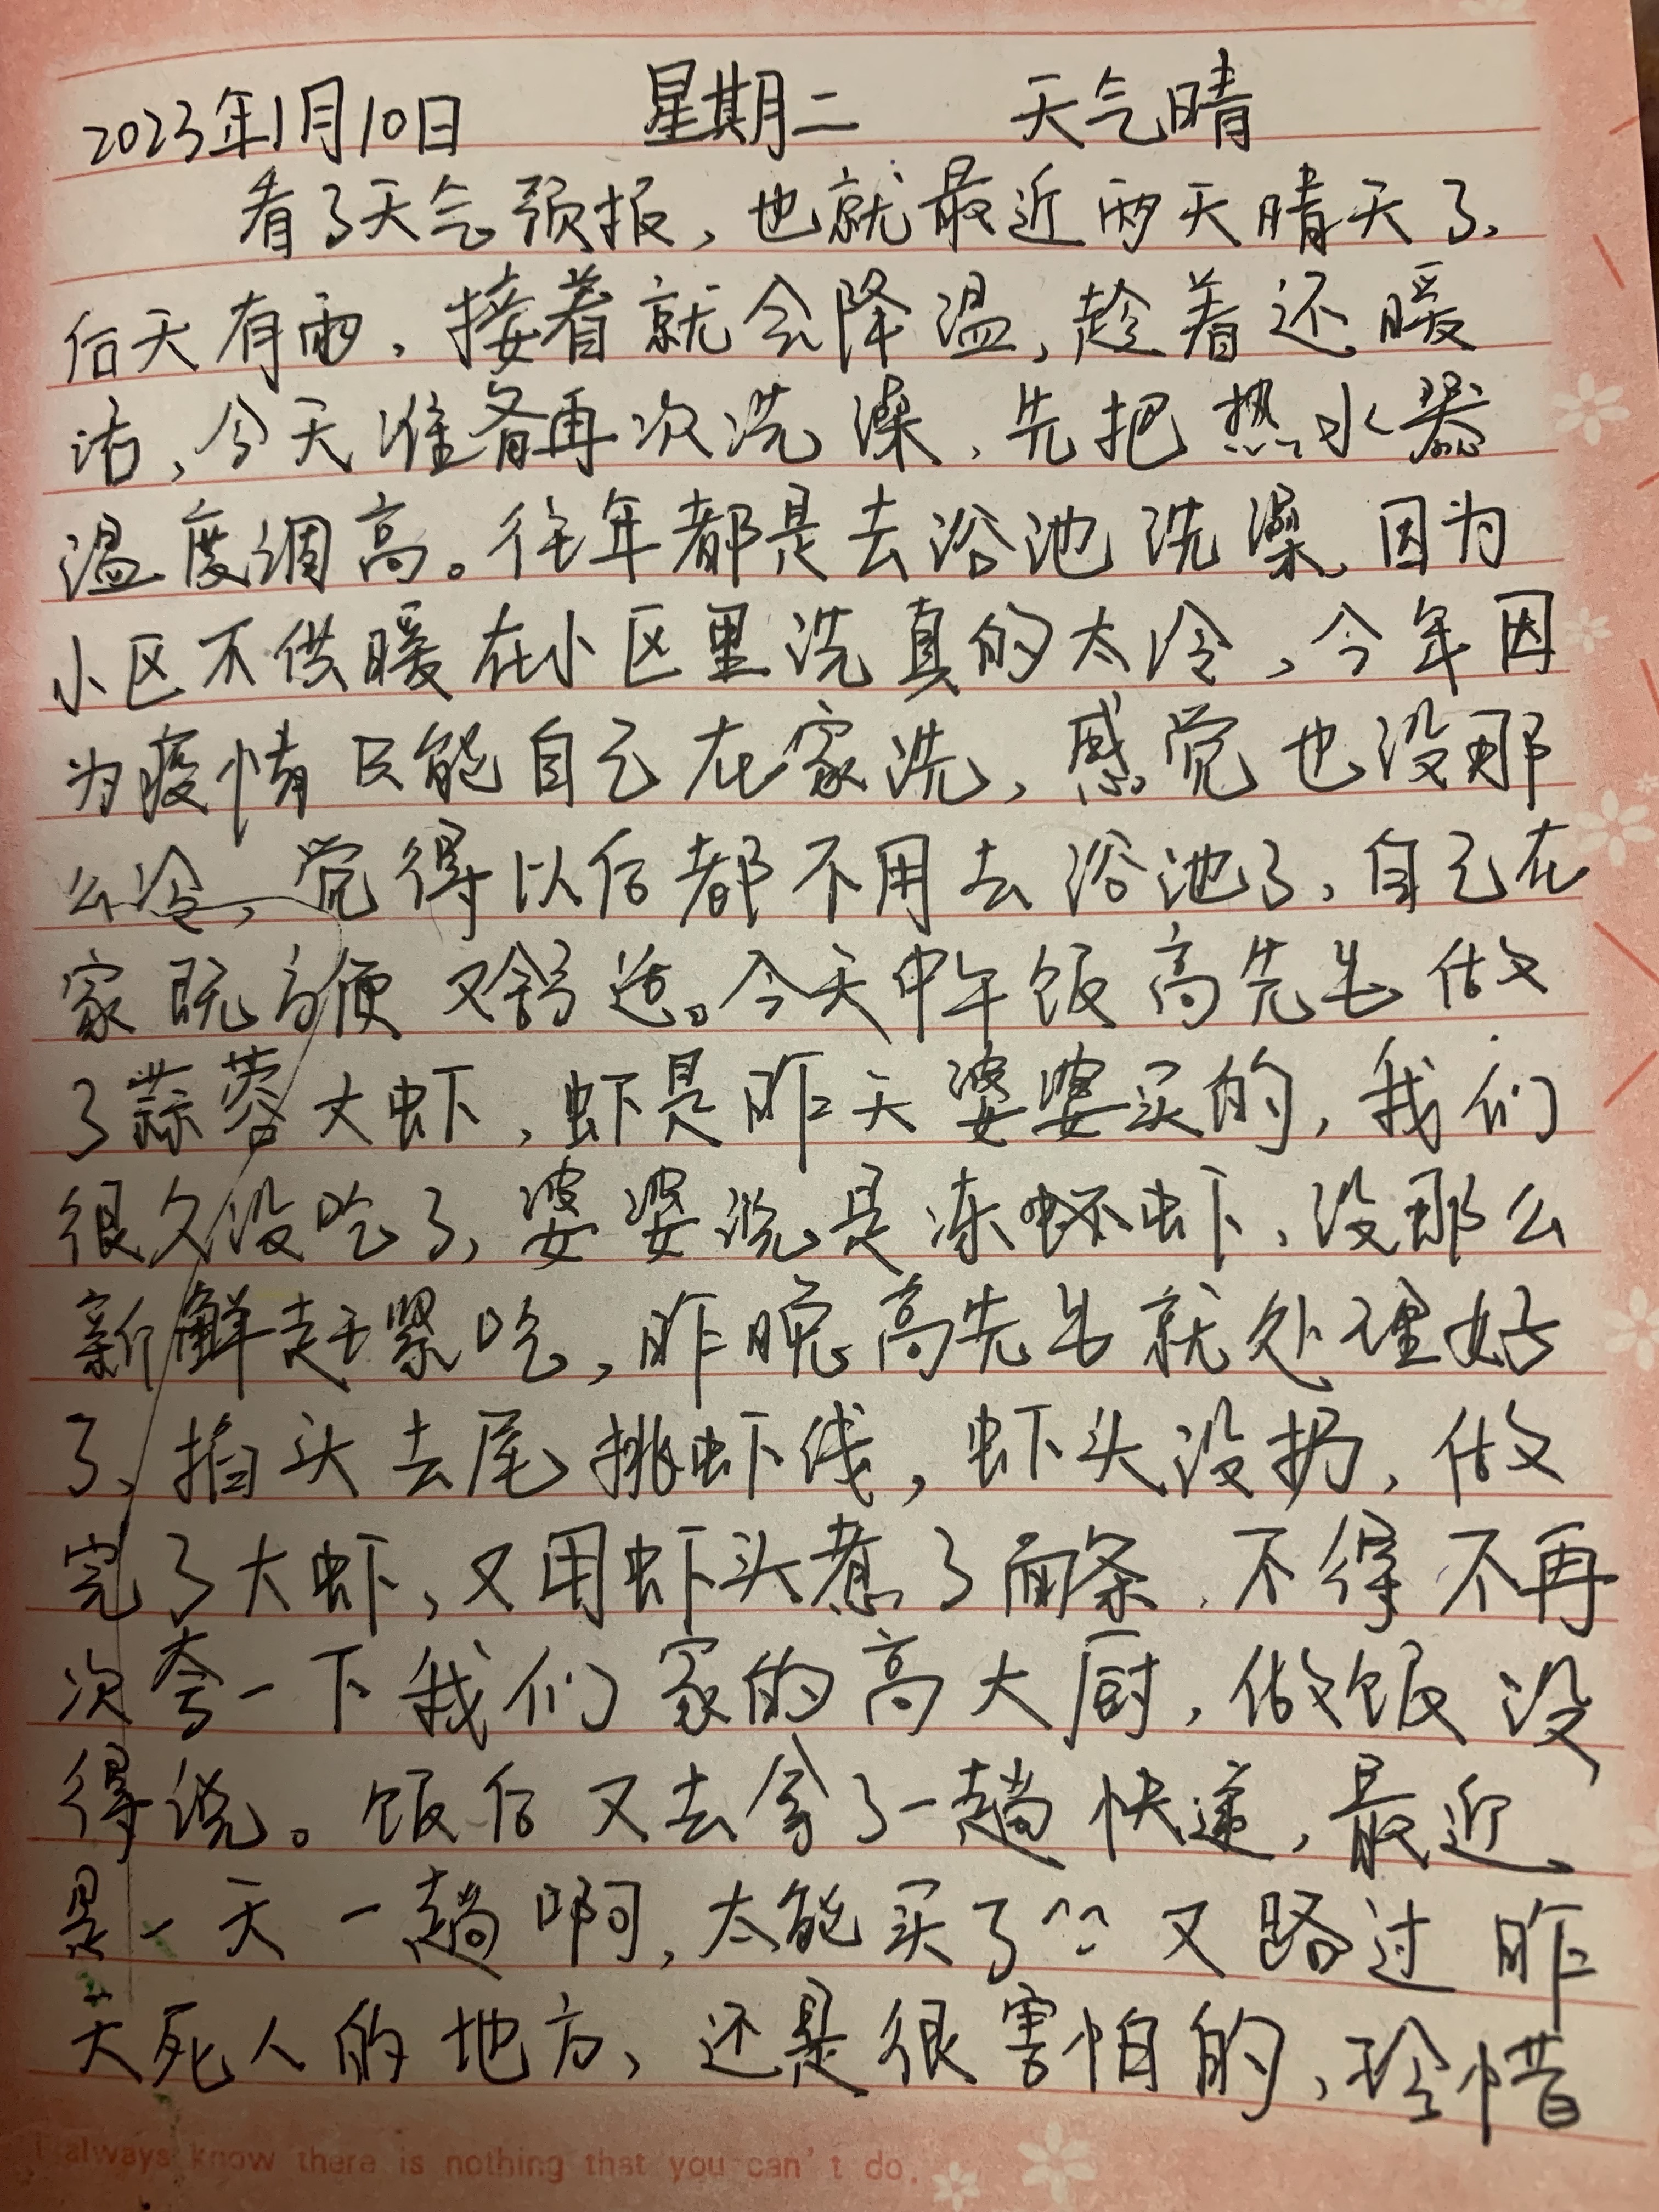 2023年1月10日 星期二 天气晴
看了天气预报，也就最近两天晴天了，
后天有雨，接着就会降温，趁着还暖
活，今天准备再次洗澡，先把热水器
温度调高。往年都是去浴池洗澡，因为
小区不供暖在小区里洗真的太冷，今年因
为疫情只能自己在家洗，感觉也没那
么冷，觉得以后都不用去浴池了，自己在
家既方便又舒适。今天中午饭高先生做
了蒜蓉大虾，虾是昨天婆婆买的，我们
很久没吃了，婆婆说是冻虾，没那么
新鲜赶紧吃，昨晚高先生就处理好
了，掐头去尾挑虾线，虾头没扔，做
完了大虾，又用虾头煮了面条，不得不再
次夸一下我们家的高大厨，做饭没
得说。饭后又去拿了一趟快递，最近
是一天一趟啊，太能买了^^又路过昨
天死人的地方，还是很害怕的，珍惜
I always know there is nothing that you can't do.